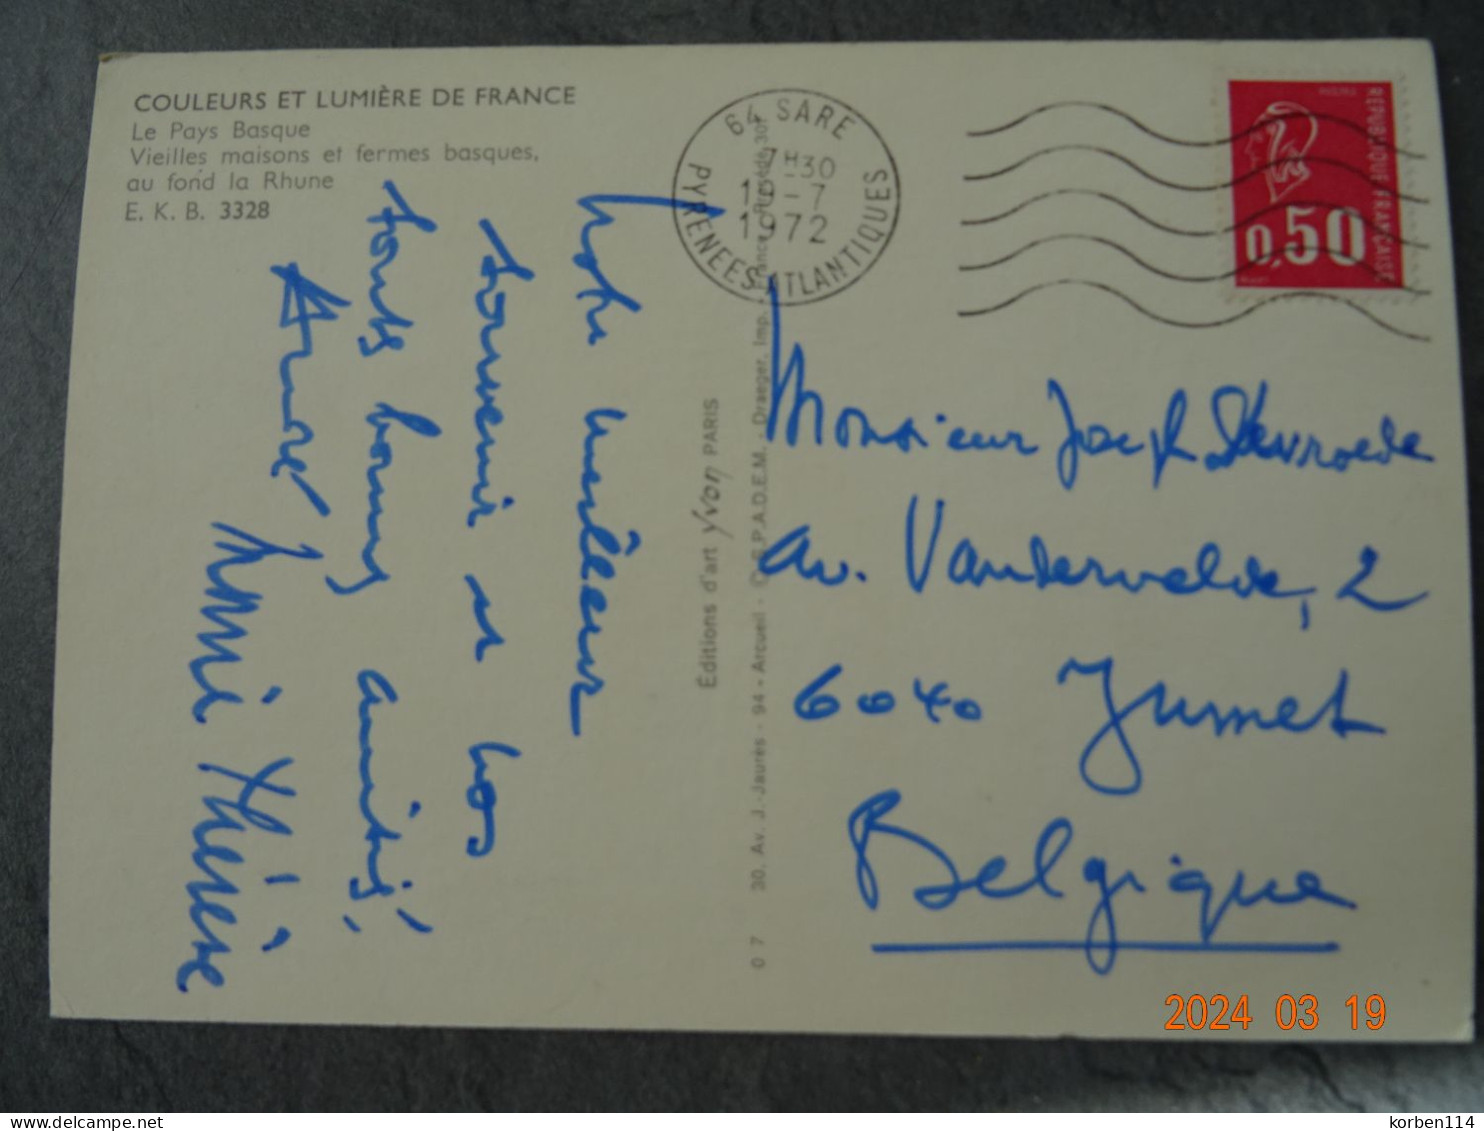 COULEURS ET LUMIÈRE DE FRANCE
Le Pays Basque
Vieilles maisons et fermes basques,
au fond la Rhune
E. K. B. 3328
64 SARE
7H30
19-7
1972
PYRENEES ATLANTIQUES
REPUBLIQUE FRANCAISE
0,50
Notre meilleur
souvenir et nos
toutes bonnes amitiés,
André
Marie Thérèse
Éditions d'art Yvon PARIS
0 7 30, Av. J.-Jaurès - 94 - Arcueil - S.P.A.D.E.M. - Draeger, Imp.
Monsieur Joseph Devroede
Av. Vandervelde, 2
6040 Jumet
Belgique
2024 03 19
korben114